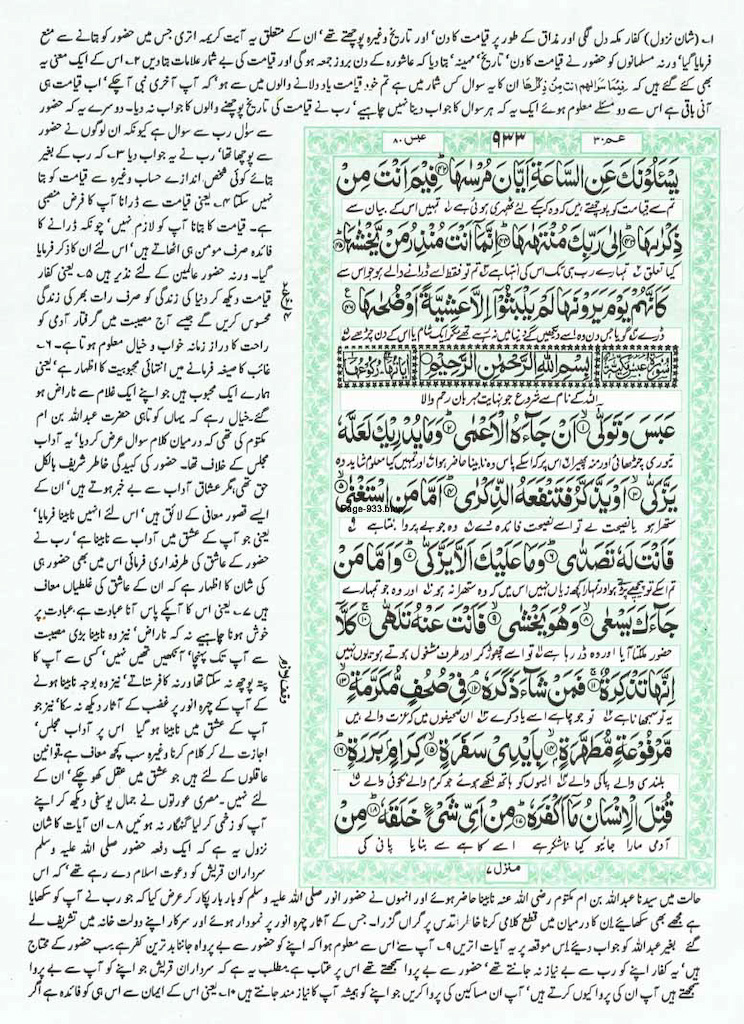 ۱۔ (شان نزول) کفار مکہ دل لگی اور مذاق کے طور پر قیامت کا دن' اور تاریخ وغیرہ پوچھتے تھے' ان کے متعلق یہ آیت کریمہ اتری جس میں حضور کو بتانے سے منع
فرمایا گیا' ورنہ مسلمانوں کو حضور نے قیامت کا دن' تاریخ' مہینہ' بتا دیا کہ عاشورہ کے دن بروز جمعہ ہو گی اور قیامت کی بے شمار علامات بتا دیں ۲۔ اس کے ایک معنی یہ
بھی کئے گئے ہیں کہ فِيْمَا سوالهم انت من ذكرٰها ان کا یہ سوال کس شمار میں ہے تم خود قیامت یاد دلانے والوں میں سے ہو' کہ آپ آخری نبی آچکے' اب قیامت ہی
آنی باقی ہے اس سے دو مسئلے معلوم ہوئے ایک یہ کہ ہر سوال کا جواب دینا نہیں چاہیے' رب نے قیامت کی تاریخ پوچھنے والوں کا جواب نہ دیا۔ دوسرے یہ کہ حضور
سے سؤل رب سے سوال ہے کیونکہ ان لوگوں نے حضور
سے پوچھا تھا' رب نے یہ جواب دیا ۳۔ کہ رب کے بغیر
بتائے کوئی شخص اندازے حساب وغیرہ سے قیامت کو بتا
نہیں سکتا ۴۔ یعنی قیامت سے ڈرانا آپ کا فرض منصبی
ہے۔ قیامت کا بتانا آپ کو لازم نہیں' چونکہ ڈرانے کا
فائدہ صرف مومن ہی اٹھاتے ہیں' اس لئے ان کا ذکر فرمایا
گیا۔ ورنہ حضور عالمین کے لئے نذیر ہیں ۵۔ یعنی کفار
قیامت دیکھ کر دنیا کی زندگی کو صرف رات بھر کی زندگی
محسوس کریں گے جیسے آج مصیبت میں گرفتار آدمی کو
راحت کا دراز زمانہ خواب و خیال معلوم ہوتا ہے۔ ۶۔
غائب کا صیغہ فرمانے میں انتہائی محبوبیت کا اظہار ہے' یعنی
ہمارے ایک محبوب ہیں جو اپنے ایک غلام سے ناراض ہو
گئے۔ خیال رہے کہ یہاں کوتاہی حضرت عبداللہ بن ام
مکتوم کی تھی کہ درمیان کلام سوال عرض کر دیا' یہ آداب
مجلس کے خلاف تھا۔ حضور کی کبیدگی خاطر شریف بالکل
حق تھی' مگر عشاق آداب سے بے خبر ہوتے ہیں' ان کے
ایسے قصور معافی کے لائق ہیں' اس لئے انہیں نابینا فرمایا'
یعنی جو آپ کے عشق میں آداب سے نابینا ہے' رب نے
حضور کے عاشق کی طرفداری فرمائی اس میں بھی حضور ہی
کی شان کا اظہار ہے کہ ان کے عاشق کی غلطیاں معاف
ہیں ۷۔ یعنی اس کا آپکے پاس آنا عبادت ہے، عبادت پر
خوش ہونا چاہیے نہ کہ ناراض' نیز وہ نابینا بڑی مصیبت
سے آپ تک پہنچا' آنکھیں تھیں نہیں' کسی سے آپ کا
پتہ پوچھ نہ سکتا تھا ورنہ کافر ستاتے' نیز وہ بوجہ نابینا ہونے
کے آپ کے چہرہ انور پر غضب کے آثار دیکھ نہ سکا' نیز جو
آپ کے عشق میں نابینا ہو گیا اس پر آداب مجلس'
اجازت لے کر کلام کرنا وغیرہ سب کچھ معاف ہے، قوانین
عاقلوں کے لئے ہیں جو عشق میں عقل کھو چکے' ان کے
لئے نہیں۔ مصری عورتوں نے جمال یوسفی دیکھ کر اپنے
آپ کو زخمی کر لیا گنہگار نہ ہوئیں ۸۔ ان آیات کا شان
نزول یہ ہے کہ ایک دفعہ حضور صلی اللہ علیہ وسلم
سرداران قریش کو دعوت اسلام دے رہے تھے' کہ اس
عبس ۸۰
۹۳۳
عمّ ۳۰
يَسْـَٔلُوْنَكَ عَنِ السَّاعَةِ اَيَّانَ مُرْسٰىهَا ﴿۴۲﴾ فِيْمَ اَنْتَ مِنْ
تم سے قیامت کو پوچھتے ہیں کہ وہ کب کیلئے ٹھہری ہوئی ہے ۱ تمہیں اس کے بیان سے
ذِكْرٰىهَا ﴿۴۳﴾ اِلٰى رَبِّكَ مُنْتَهٰىهَا ﴿۴۴﴾ اِنَّمَاۤ اَنْتَ مُنْذِرُ مَنْ يَّخْشٰىهَا ﴿۴۵﴾
کیا تعلق ۲ تمہارے رب ہی تک اس کی انتہا ہے ۳ تم تو فقط اسے ڈرانے والے ہو جو اس سے
كَاَنَّهُمْ يَوْمَ يَرَوْنَهَا لَمْ يَلْبَثُوْۤا اِلَّا عَشِيَّةً اَوْ ضُحٰىهَا ﴿۴۶﴾
ڈرے ۴ گویا جس دن وہ اسے دیکھیں گے دنیا میں نہ رہے تھے مگر ایک شام یا اس کے دن چڑھے ۵
سُوْرَةُ عَبَسَ مَكِّيَّةٌ
بِسْمِ اللّٰهِ الرَّحْمٰنِ الرَّحِيْمِ
اٰيَاتُهَا ۴۲ رُكُوْعُهَا ۱
اللہ کے نام سے شروع جو نہایت مہربان رحم والا
عَبَسَ وَتَوَلّٰۤى ﴿۱﴾ اَنْ جَآءَهُ الْاَعْمٰى ﴿۲﴾ وَمَا يُدْرِيْكَ لَعَلَّهٗ
تیوری چڑھائی اور منہ پھیرا ۶ اس پر کہ اسکے پاس وہ نابینا حاضر ہوا ۷ اور تمہیں کیا معلوم شاید وہ
يَزَّكّٰۤى ﴿۳﴾ اَوْ يَذَّكَّرُ فَتَنْفَعَهُ الذِّكْرٰى ﴿۴﴾ اَمَّا مَنِ اسْتَغْنٰى ﴿۵﴾
Page-933.bmp
ستھرا ہو یا نصیحت لے تو اسے نصیحت فائدہ دے ۸ وہ جو بے پروا بنتا ہے ۹
فَاَنْتَ لَهٗ تَصَدّٰى ﴿۶﴾ وَمَا عَلَيْكَ اَلَّا يَزَّكّٰى ﴿۷﴾ وَاَمَّا مَنْ
تم اسکے تو پیچھے پڑتے ہو اور تمہارا کچھ زیاں نہیں اس میں کہ وہ ستھرا نہ ہو ۱۰ اور وہ جو تمہارے
جَآءَكَ يَسْعٰى ﴿۸﴾ وَهُوَ يَخْشٰى ﴿۹﴾ فَاَنْتَ عَنْهُ تَلَهّٰى ﴿۱۰﴾ كَلَّاۤ
حضور ملکتا آیا اور وہ ڈر رہا ہے تو اسے چھوڑ کر اور طرف مشغول ہوتے ہو یوں نہیں
اِنَّهَا تَذْكِرَةٌ ﴿۱۱﴾ فَمَنْ شَآءَ ذَكَرَهٗ ﴿۱۲﴾ فِيْ صُحُفٍ مُّكَرَّمَةٍ ﴿۱۳﴾
یہ تو سمجھانا ہے تو جو چاہے اسے یاد کرے ان صحیفوں میں کہ عزت والے ہیں
مَّرْفُوْعَةٍ مُّطَهَّرَةٍ ﴿۱۴﴾ بِاَيْدِيْ سَفَرَةٍ ﴿۱۵﴾ كِرَامٍۭ بَرَرَةٍ ﴿۱۶﴾
بلندی والے پاکی والے ایسوں کے ہاتھ لکھے ہوئے جو کرم والے نکوئی والے
قُتِلَ الْاِنْسَانُ مَاۤ اَكْفَرَهٗ ﴿۱۷﴾ مِنْ اَيِّ شَيْءٍ خَلَقَهٗ ﴿۱۸﴾ مِنْ
آدمی مارا جائیو کیا ناشکر ہے اسے کاہے سے بنایا پانی کی
منزل ۷
وقف لازم
حالت میں سیدنا عبداللہ بن ام مکتوم رضی اللہ عنہ نابینا حاضر ہوئے اور انہوں نے حضور انور صلی اللہ علیہ وسلم کو بار بار پکار کر عرض کیا کہ جو رب نے آپ کو سکھایا
ہے مجھے بھی سکھائیے، ان کا درمیان میں قطع کلامی کرنا خاطر اقدس پر گراں گزرا۔ جس کے آثار چہرہ انور پر نمودار ہوئے اور سرکار اپنے دولت خانہ میں تشریف لے
گئے بغیر عبداللہ کو جواب دیئے۔ اس موقعہ پر یہ آیات اتریں ۹۔ آپ سے اس سے معلوم ہوا کہ اپنے کو حضور سے بے پرواہ جاننا بدترین کفر ہے سب حضور کے محتاج
ہیں' یہ کفار اپنے کو رب سے بے نیاز نہ جانتے تھے' حضور سے بے پروا سمجھتے تھے اس پر عتاب ہے، مطلب یہ ہے کہ سرداران قریش جو اپنے کو آپ سے بے پروا
سمجھتے ہیں آپ ان کی پروا کیوں کرتے ہیں' آپ ان مساکین کی پروا کریں جو اپنے کو ہمیشہ آپ کا نیاز مند جانتے ہیں ۱۰۔ یعنی اس کے ایمان سے اس ہی کو فائدہ ہے اگر